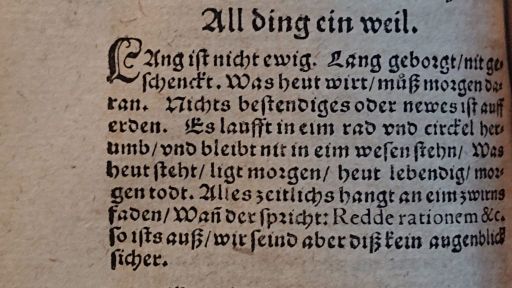 All ding ein weil.
LAng ist nicht ewig. Lang geborgt/nit ge-
schenckt. Was heut wirt/můß morgen da-
ran. Nichts bestendiges oder newes ist auff
erden. Es laufft in eim rad vnd circkel her-
umb/vnd bleibt nit in eim wesen stehn/ Was
heut steht/ ligt morgen/ heut lebendig/ mor-
gen todt. Alles zeitlichs hangt an eim zwirns
faden/Wañ der spricht: Redde rationem &c.
so ists auß/wir seind aber diß kein augenblick
sicher.